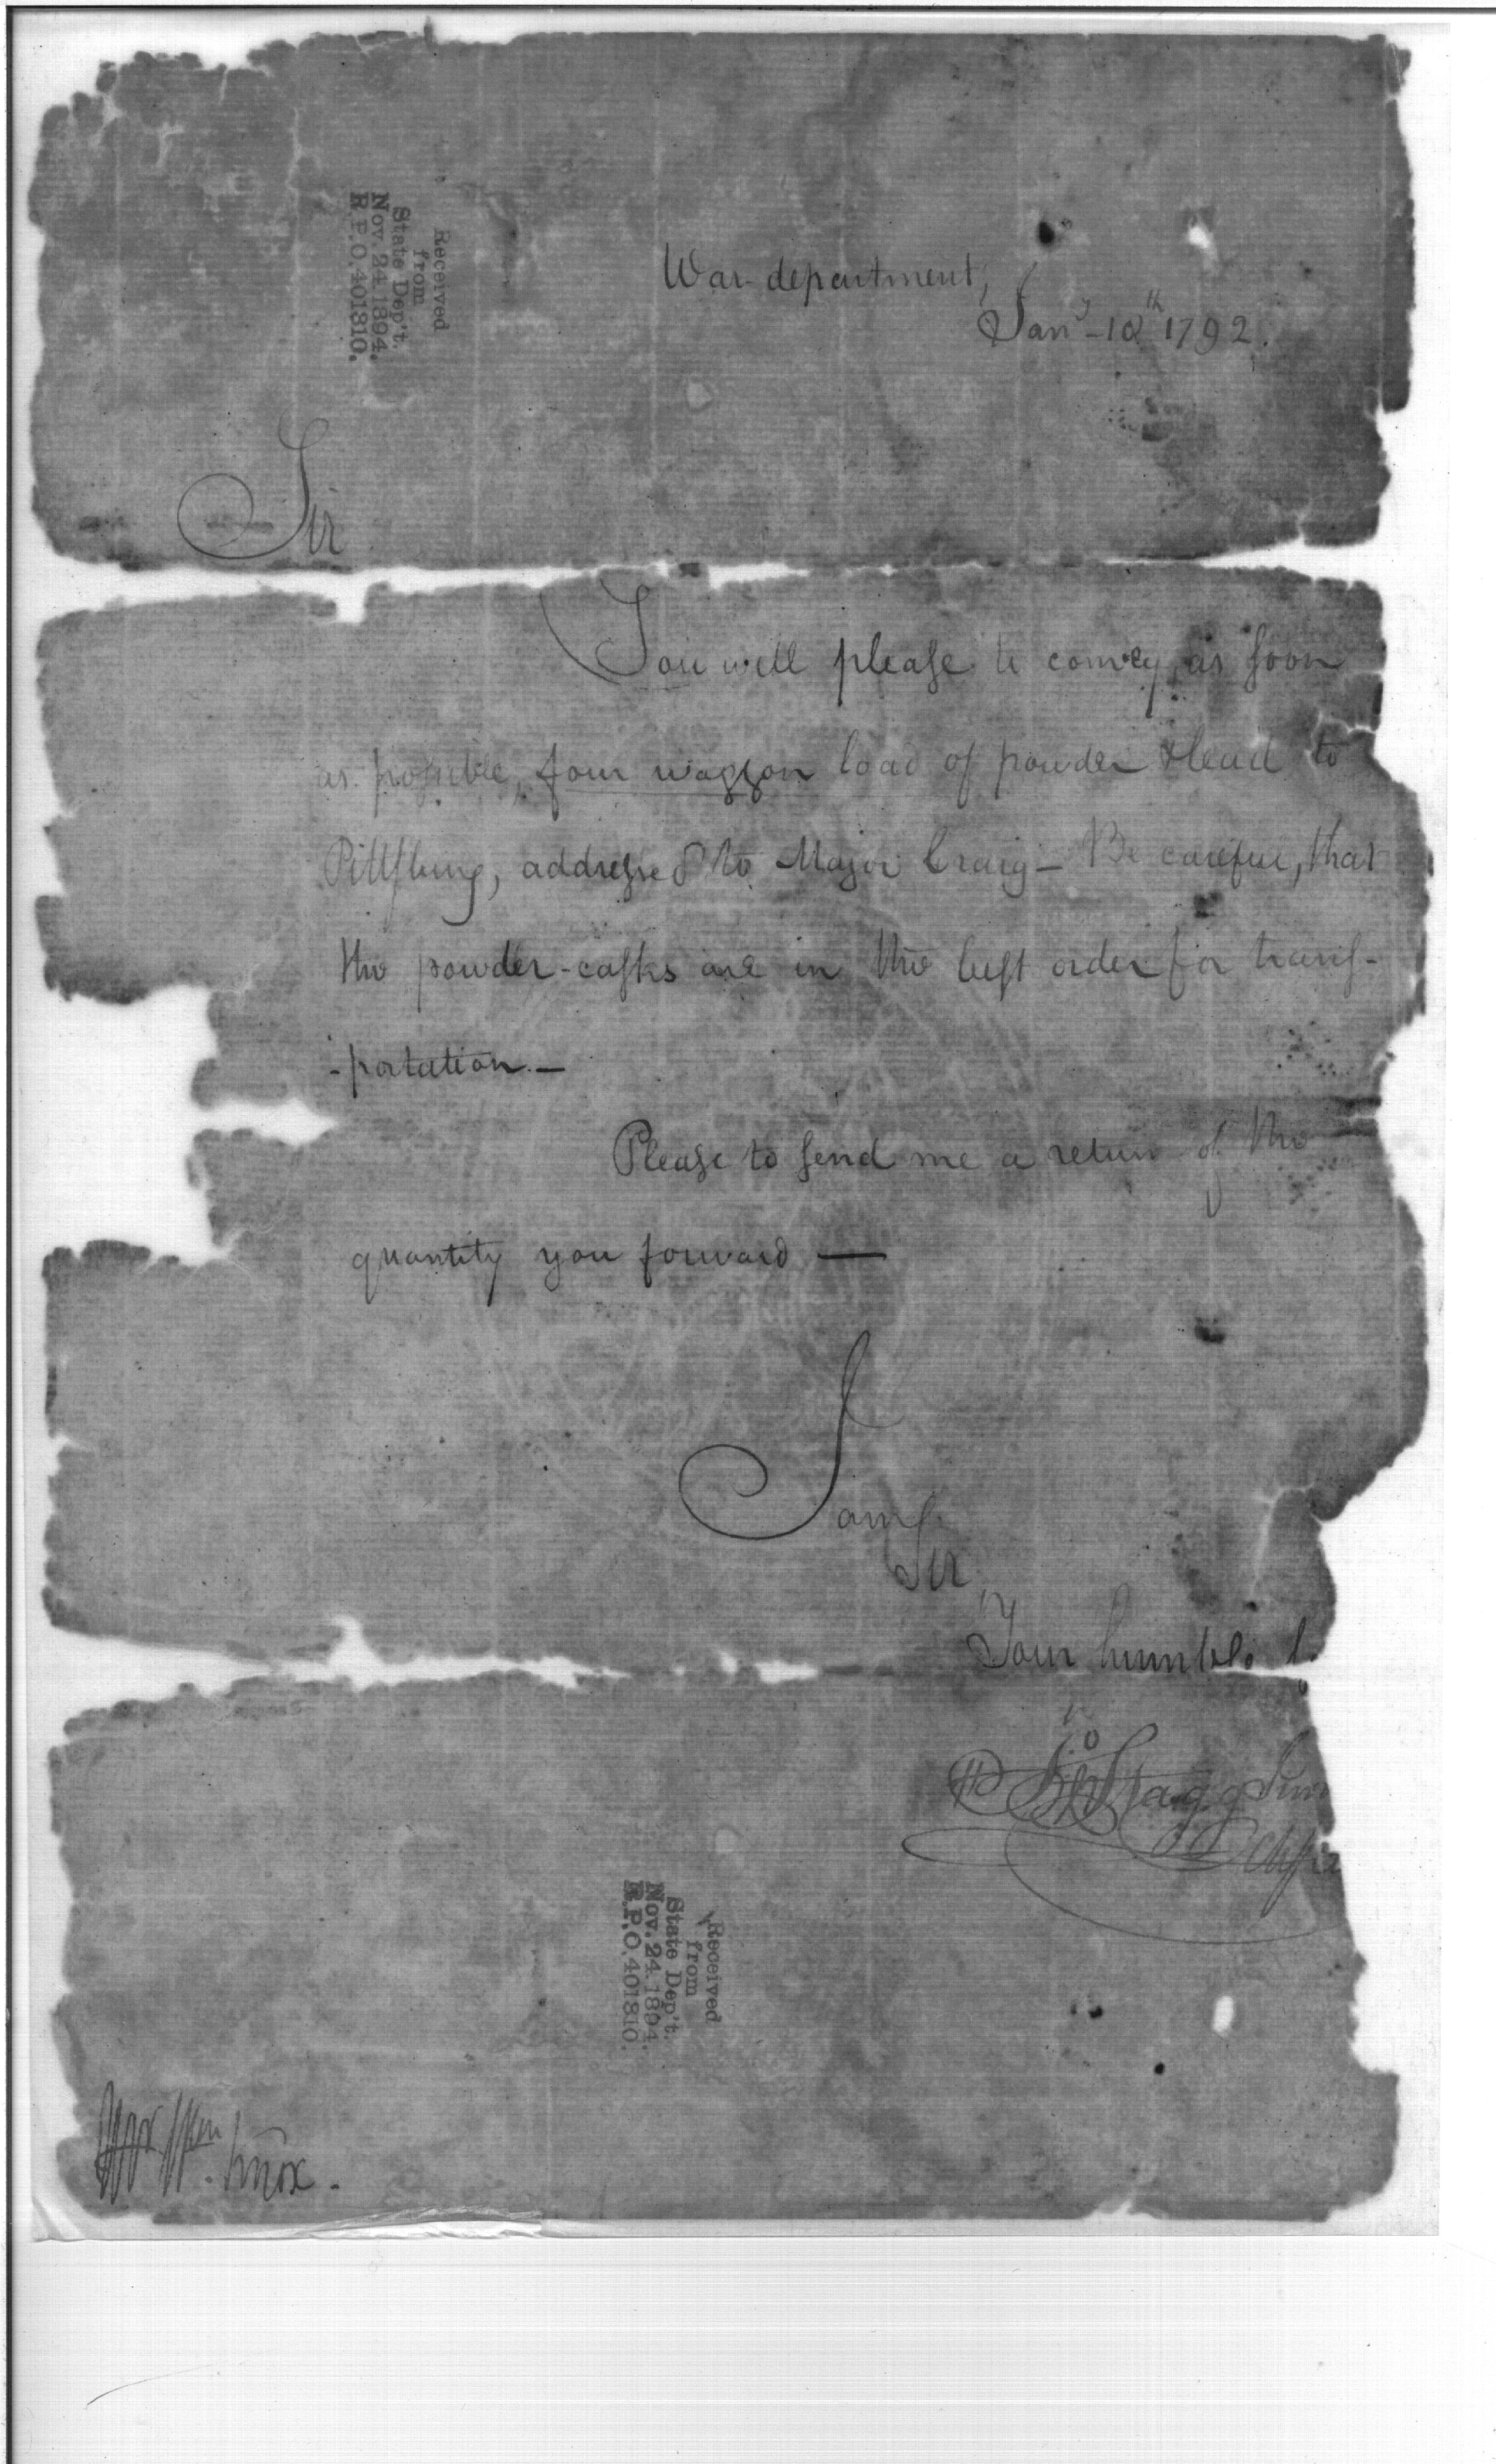 Received
from
State Dep't.
Nov. 24 1894.
R.P.O. 401310.
War department,
Jany - 10th 1792.
Sir
You will please to convey, as soon
as possible, four waggon load of powder & lead to
Pittsburg, addressed to Major Craig — Be careful, that
the powder-casks are in the best order for trans-
-portation. —
Please to send me a return of the
quantity you forward —
I am
Sir,
Your humble
Jno Stagg Junr
Received
from
State Dep't.
Nov. 24 1894.
R.P.O. 401310.
Mr Wm. Knox.